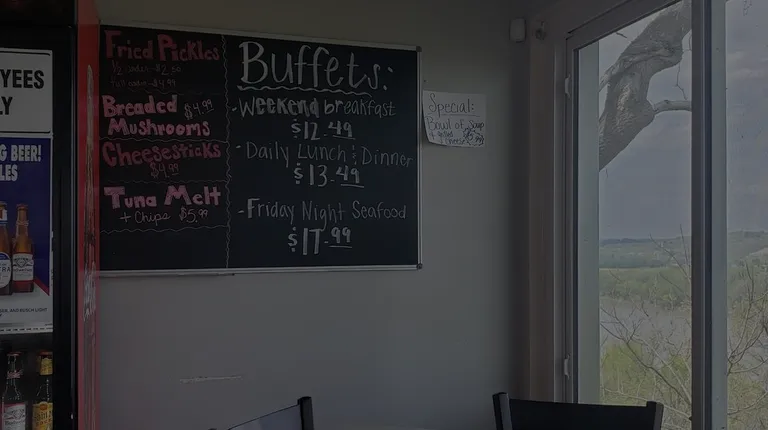 YEES
LY
G BEER!
LES
Fried Pickles
1/2 order - $2.50
full order - $4.99
Breaded $4.99
Mushrooms
Cheesesticks
$4.99
Tuna Melt
+ Chips $5.99
Buffets:
-Weekend breakfast
$12.49
-Daily Lunch & Dinner
$13.49
-Friday Night Seafood
$17.99
Special:
Bowl of Soup
+ grilled
cheese